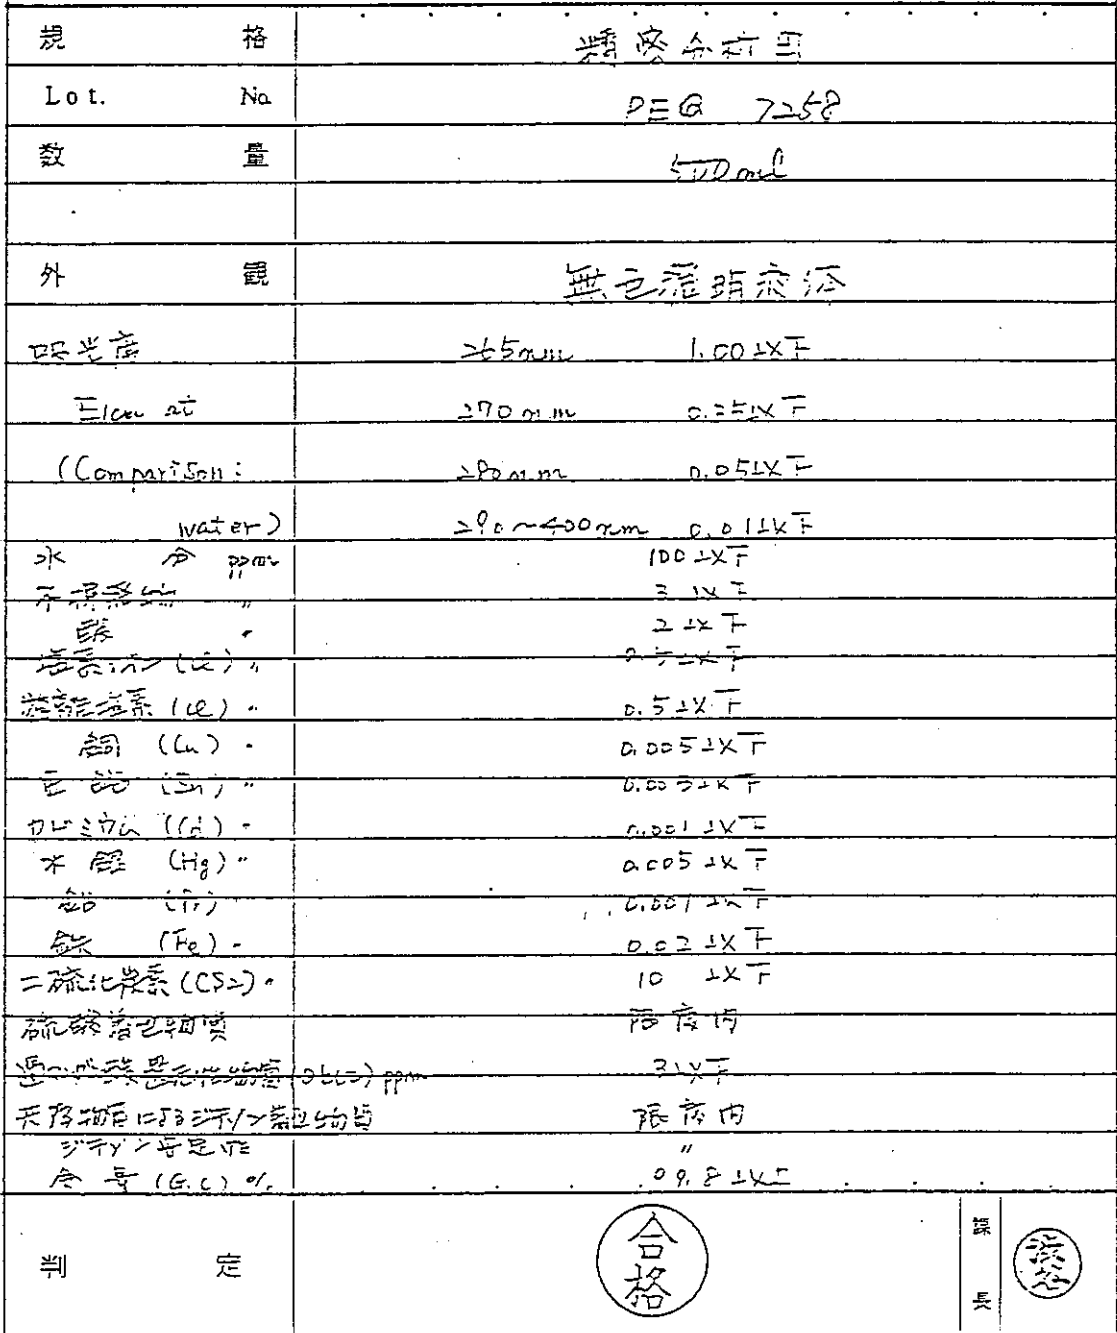 規 格 精密分析用
Lot. No. PEQ 7258
数 量 500ml
外 観 無色透明液体
吸光度 255nm 1.00以下
E1cm at 270nm 0.25以下
(Comparison: 280nm 0.05以下
water) 290~400nm 0.01以下
水 分 ppm 100以下
不揮発物 〃 3以下
酸 〃 2以下
塩素イオン(Cl) 〃 0.5以下
遊離塩素(Cl) 〃 0.5以下
銅 (Cu) 〃 0.005以下
亜鉛 (Zn) 〃 0.005以下
カドミウム (Cd) 〃 0.001以下
水銀 (Hg) 〃 0.005以下
鉛 0.001以下
鉄 (Fe) 〃 0.02以下
二硫化炭素(CS2) 〃 10 以下
硫酸着色物質 限度内
ppm 3以下
ジチゾン 限度内
ジチゾン安定性 〃
含量(G.C) % 99.8以上
判 定 合格 課長